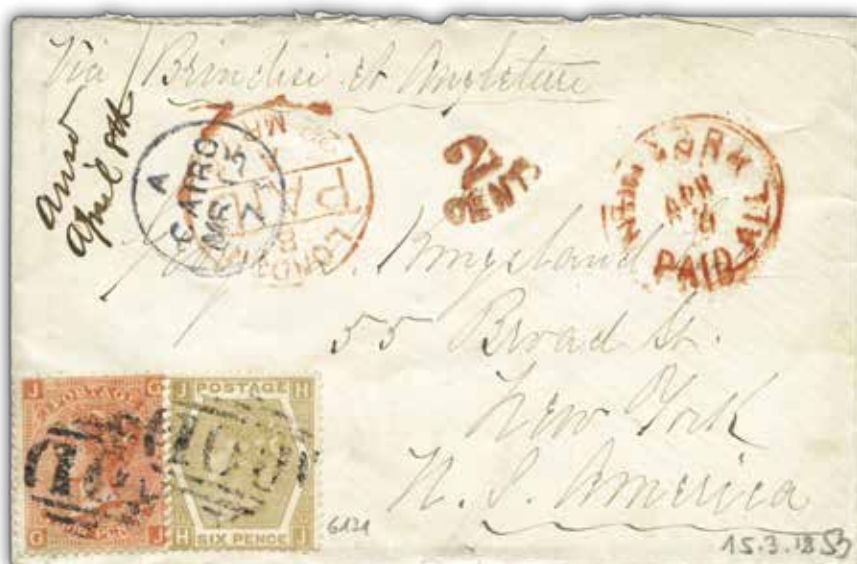 Via Brindisi et Angleterre
Answ
April 8th
A
CAIRO
MR
LONDON
PAID
2
CENTS
NEW YORK
APR
PAID ALL
Kingsland
55 Broad St.
New York
N. S. America
J G
POSTAGE
G J
J POSTAGE H
H SIX PENCE J
15.3.18